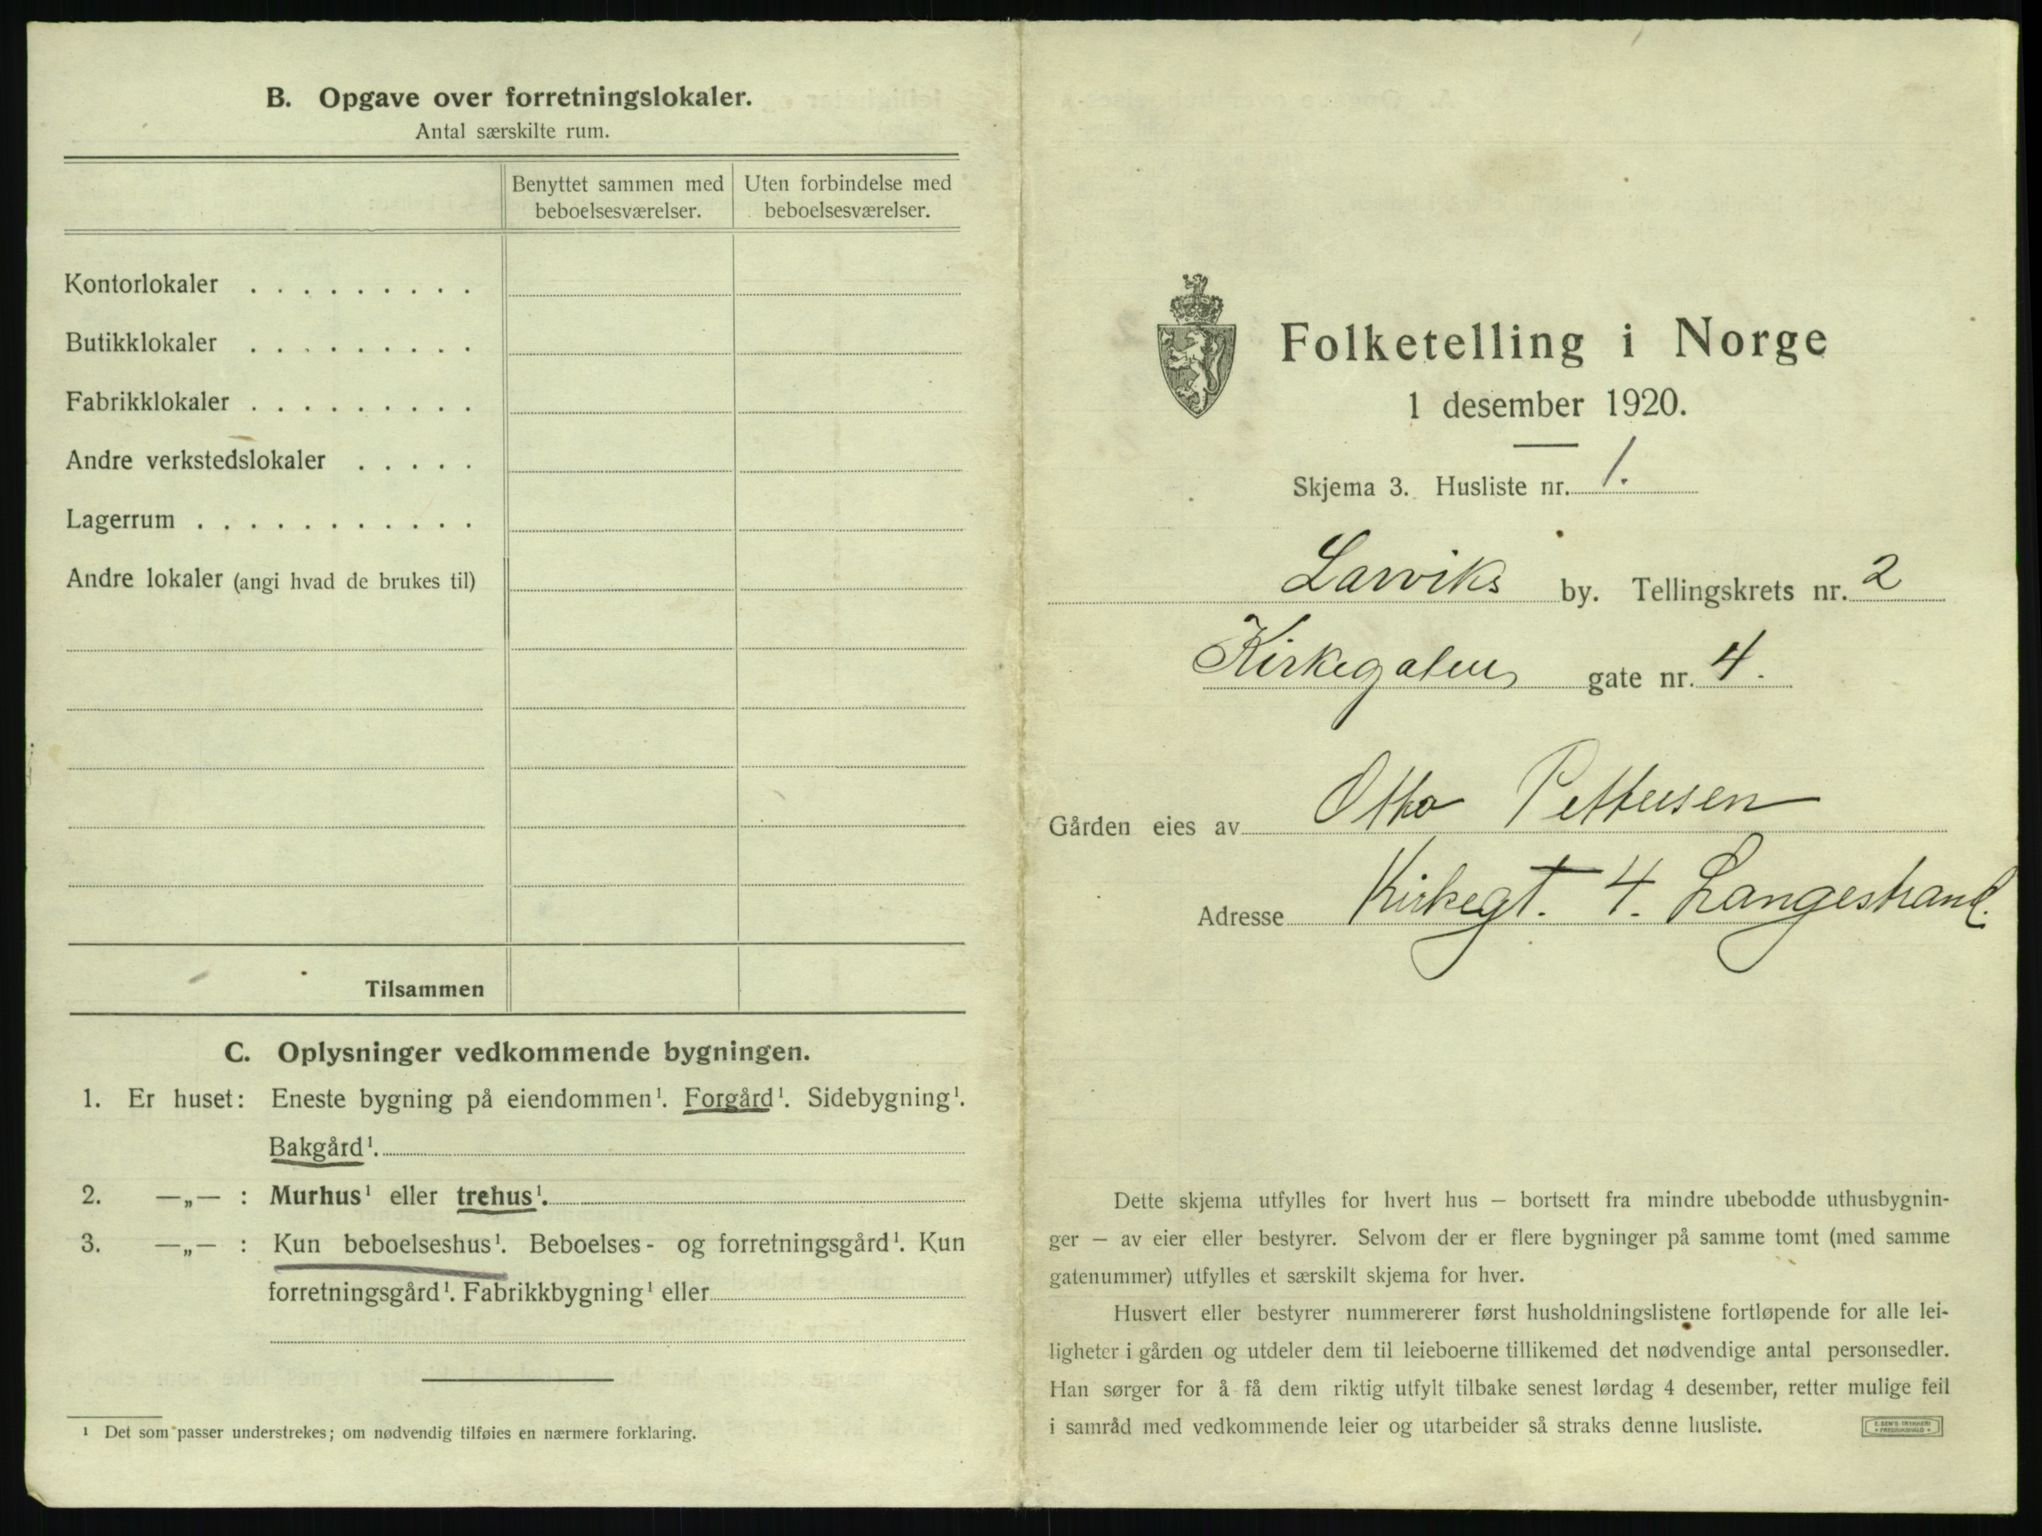 B. Opgave over forretningslokaler.
Antal særskilte rum.
Benyttet sammen med beboelsesværelser.
Uten forbindelse med beboelsesværelser.
Kontorlokaler . . . . . . . . .
Butikklokaler . . . . . . . . .
Fabrikklokaler . . . . . . . . .
Andre verkstedslokaler . . . . .
Lagerrum . . . . . . . . . . .
Andre lokaler (angi hvad de brukes til)
Tilsammen
C. Oplysninger vedkommende bygningen.
1. Er huset: Eneste bygning på eiendommen¹. Forgård¹. Sidebygning¹.
Bakgård¹.
2. —„— : Murhus¹ eller trehus¹.
3. —„— : Kun beboelseshus¹. Beboelses- og forretningsgård¹. Kun
forretningsgård¹. Fabrikkbygning¹ eller
¹ Det som passer understrekes; om nødvendig tilføies en nærmere forklaring.
Folketelling i Norge
1 desember 1920.
Skjema 3. Husliste nr. 1.
Larviks by. Tellingskrets nr. 2
Kirkegaten gate nr. 4.
Gården eies av Otto Pettersen
Adresse Kirkegt. 4. Langestrand.
Dette skjema utfylles for hvert hus – bortsett fra mindre ubebodde uthusbygnin-
ger – av eier eller bestyrer. Selvom der er flere bygninger på samme tomt (med samme
gatenummer) utfylles et særskilt skjema for hver.
Husvert eller bestyrer nummererer først husholdningslistene fortløpende for alle lei-
ligheter i gården og utdeler dem til leieboerne tillikemed det nødvendige antal personsedler.
Han sørger for å få dem riktig utfylt tilbake senest lørdag 4 desember, retter mulige feil
i samråd med vedkommende leier og utarbeider så straks denne husliste.